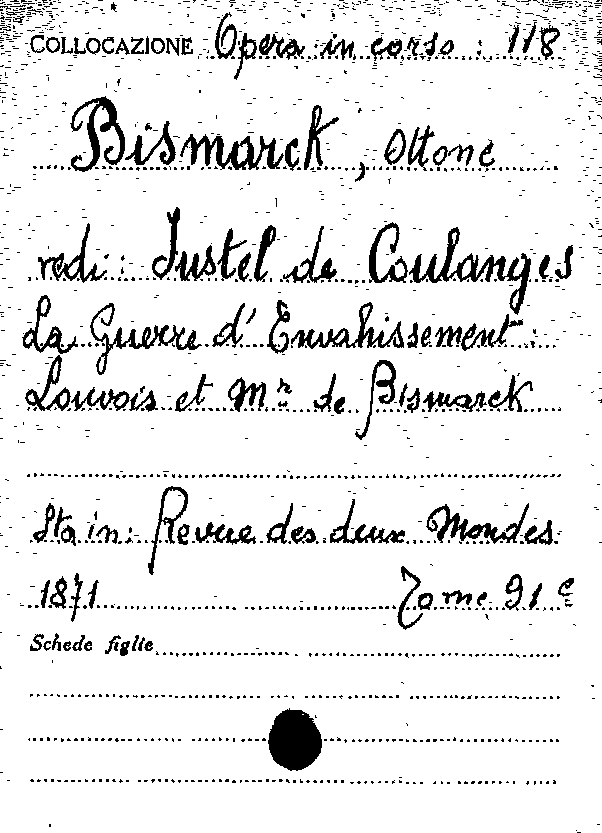 COLLOCAZIONE Opera in corso : 118
Bismarck, Ottone
vedi: Fustel de Coulanges
La Guerre d'Envahissement:
Louvois et Mr de Bismarck
Sta in: Revue des deux Mondes
1871 Tome 91e
Schede figlie